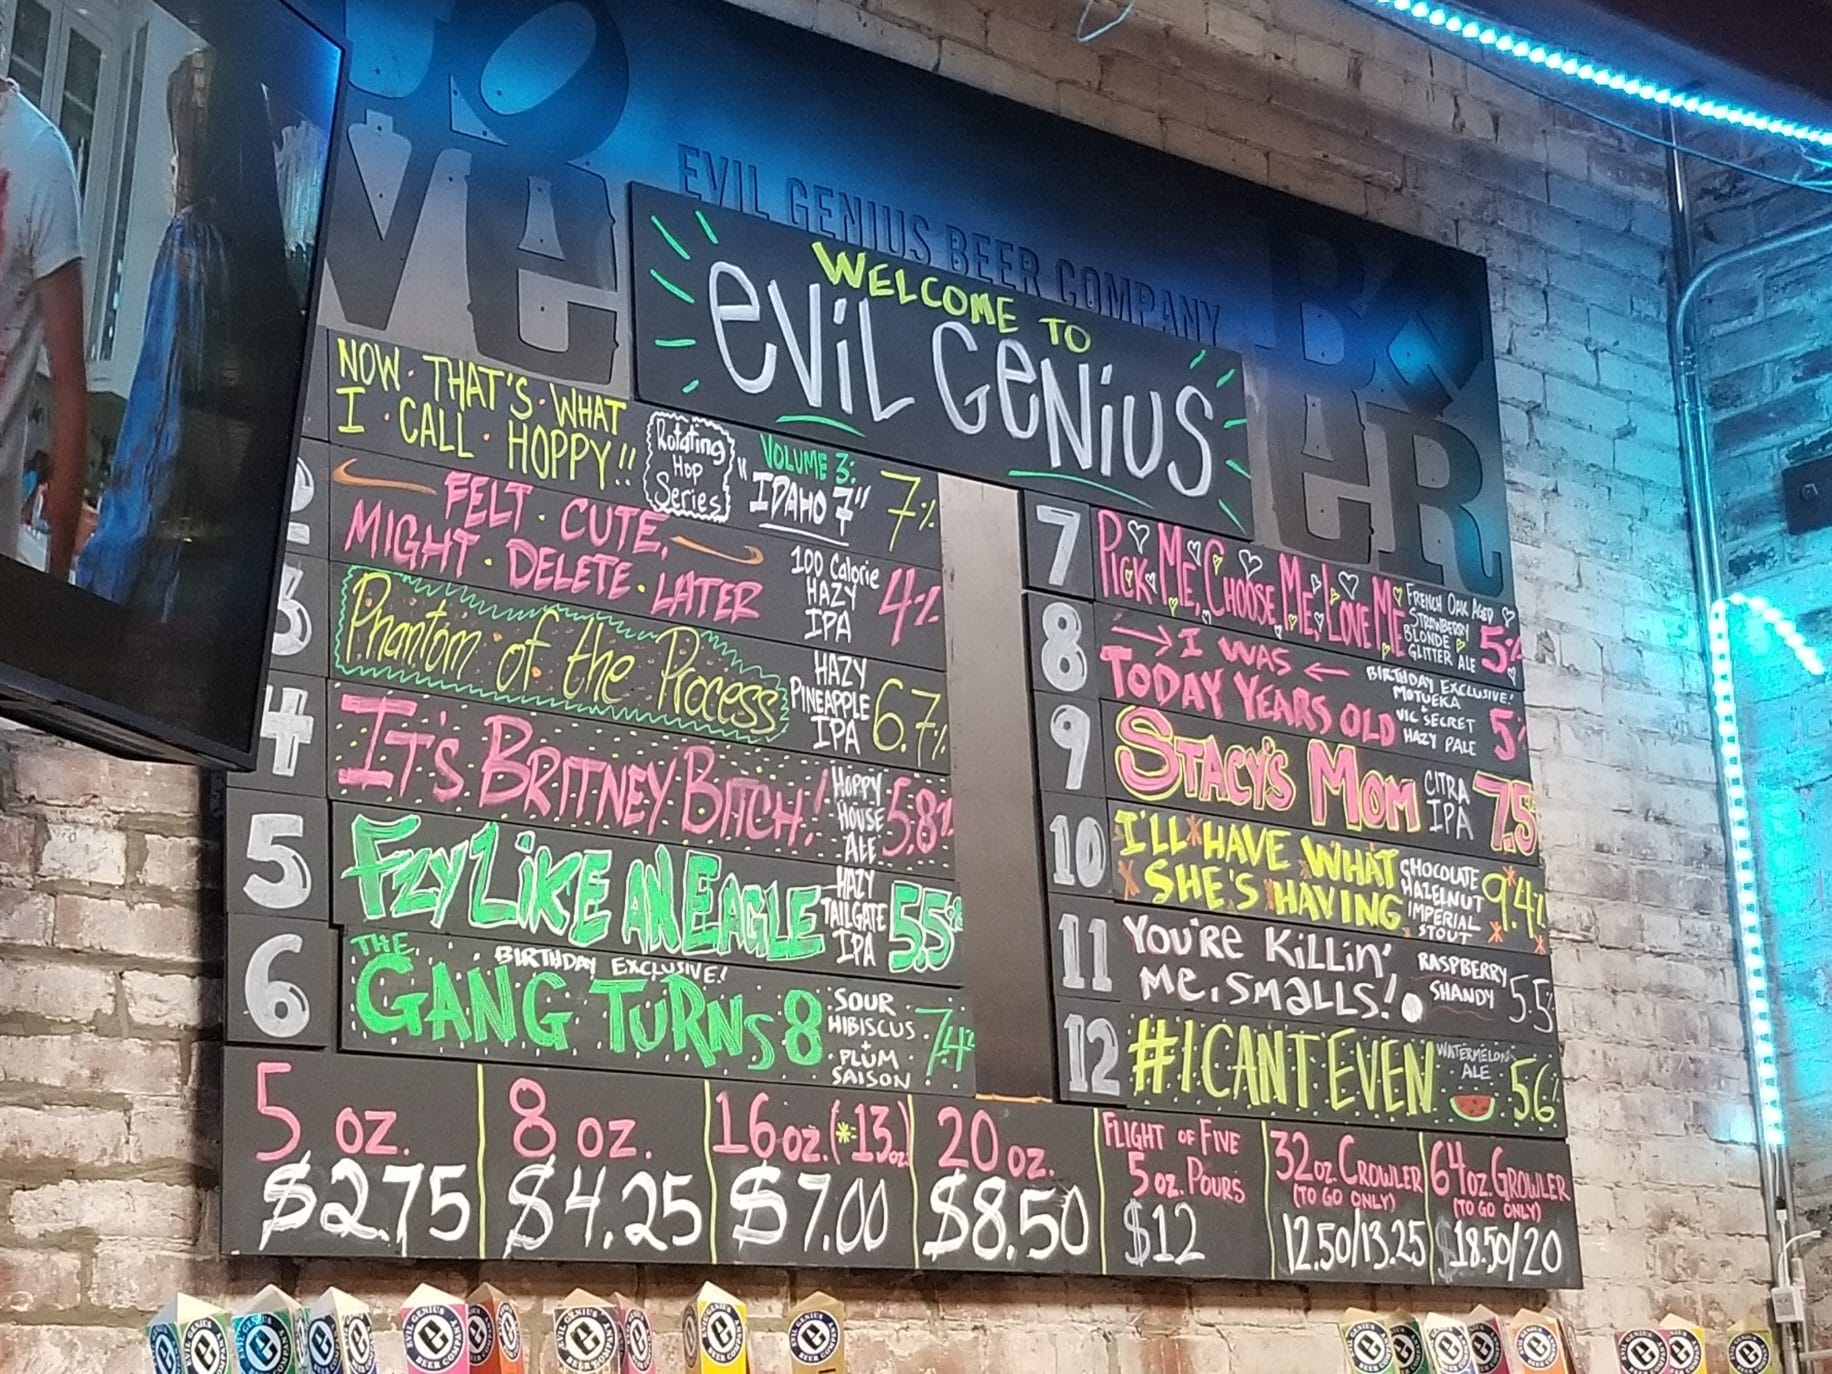 LOVE
BEER
EVIL GENIUS BEER COMPANY
WELCOME TO
EVIL GENIUS
NOW·THAT'S·WHAT
I·CALL·HOPPY!!
Rotating
Hop
Series
VOLUME 3:
"IDAHO 7"
7%
2
FELT·CUTE,
MIGHT·DELETE·LATER
100 Calorie
HAZY
IPA
4%
3
Phantom of the Process
HAZY
PINEAPPLE
IPA
6.7%
4
IT'S BRITNEY BITCH!
HOPPY
HOUSE
ALE
5.8%
5
FLY LIKE AN EAGLE
HAZY
TAILGATE
IPA
5.5%
6
THE
GANG TURNS 8
BIRTHDAY EXCLUSIVE!
SOUR
HIBISCUS
+
PLUM
SAISON
7.4%
7
PICK ME, CHOOSE ME, LOVE ME
FRENCH OAK AGED
STRAWBERRY
BLONDE
GLITTER ALE
5%
8
→I WAS←
TODAY YEARS OLD
BIRTHDAY EXCLUSIVE!
MOTUEKA
+
VIC SECRET
HAZY PALE
5%
9
STACY'S MOM
CITRA
IPA
7.5%
10
I'LL HAVE WHAT
SHE'S HAVING
CHOCOLATE
HAZELNUT
IMPERIAL
STOUT
9.4%
11
YOU'RE KILLIN'
ME, SMALLS!
RASPBERRY
SHANDY
5.5%
12
#ICANTEVEN
WATERMELON
ALE
5.6%
5 oz.
$2.75
8 oz.
$4.25
16 oz. (*13oz)
$7.00
20 oz.
$8.50
FLIGHT OF FIVE
5 oz. POURS
$12
32oz. CROWLER
(TO GO ONLY)
12.50/13.25
64oz. GROWLER
(TO GO ONLY)
$18.50/20
EVIL GENIUS
BEER COMPANY